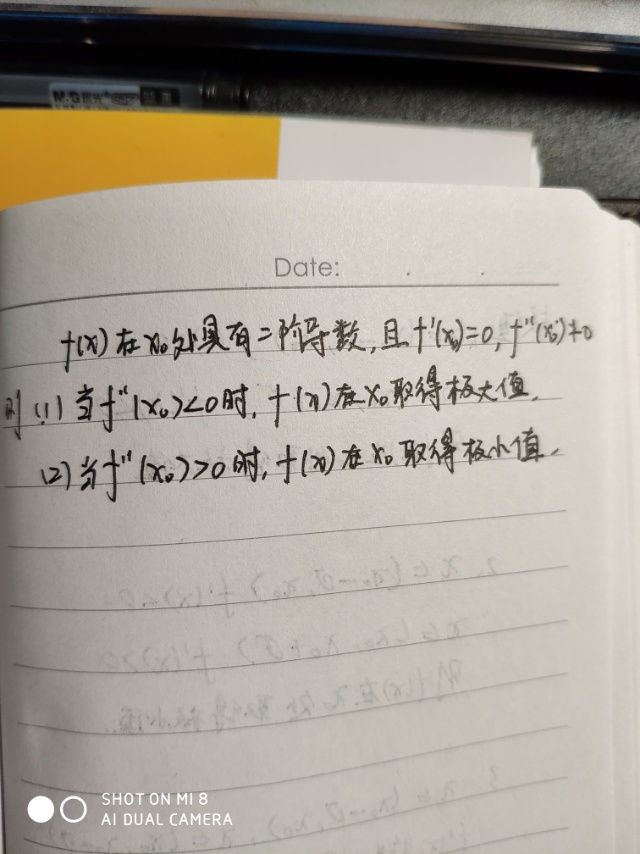 M&G
Date:
f(x)在x₀处具有二阶导数,且f'(x₀)=0,f"(x₀)≠0
则(1)当f"(x₀)<0时,f(x)在x₀取得极大值.
(2)当f"(x₀)>0时,f(x)在x₀取得极小值.
SHOT ON MI 8
AI DUAL CAMERA